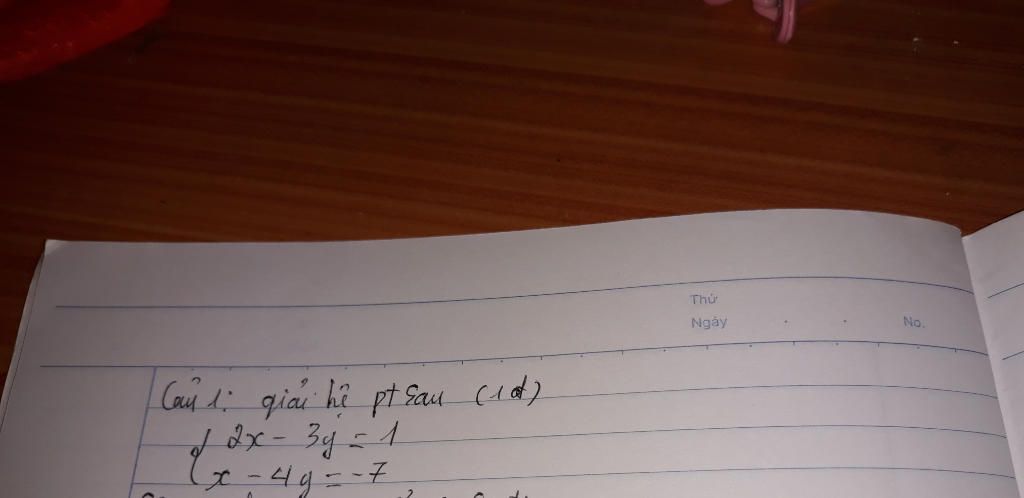 Thứ
Ngày . . No.
Câu 1: giải hệ pt sau (1đ)
{ 2x - 3y = 1
x - 4y = -7